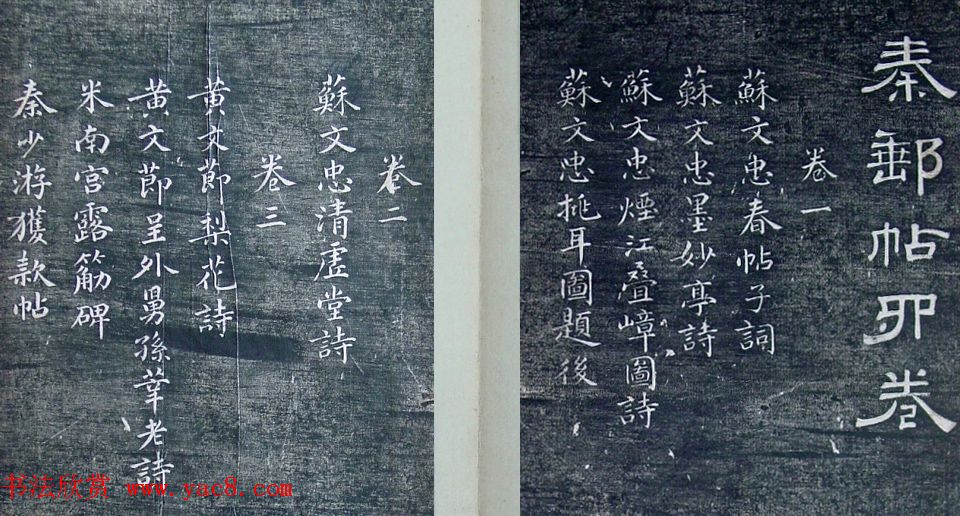 秦郵帖四卷
卷一
蘇文忠春帖子詞
蘇文忠墨妙亭詩
蘇文忠煙江疊嶂圖詩
蘇文忠挑耳圖題後
卷二
蘇文忠清虛堂詩
卷三
黃文節梨花詩
黃文節呈外舅孫莘老詩
米南宮露筋碑
秦少游獲款帖
书法欣赏 www.yac8.com